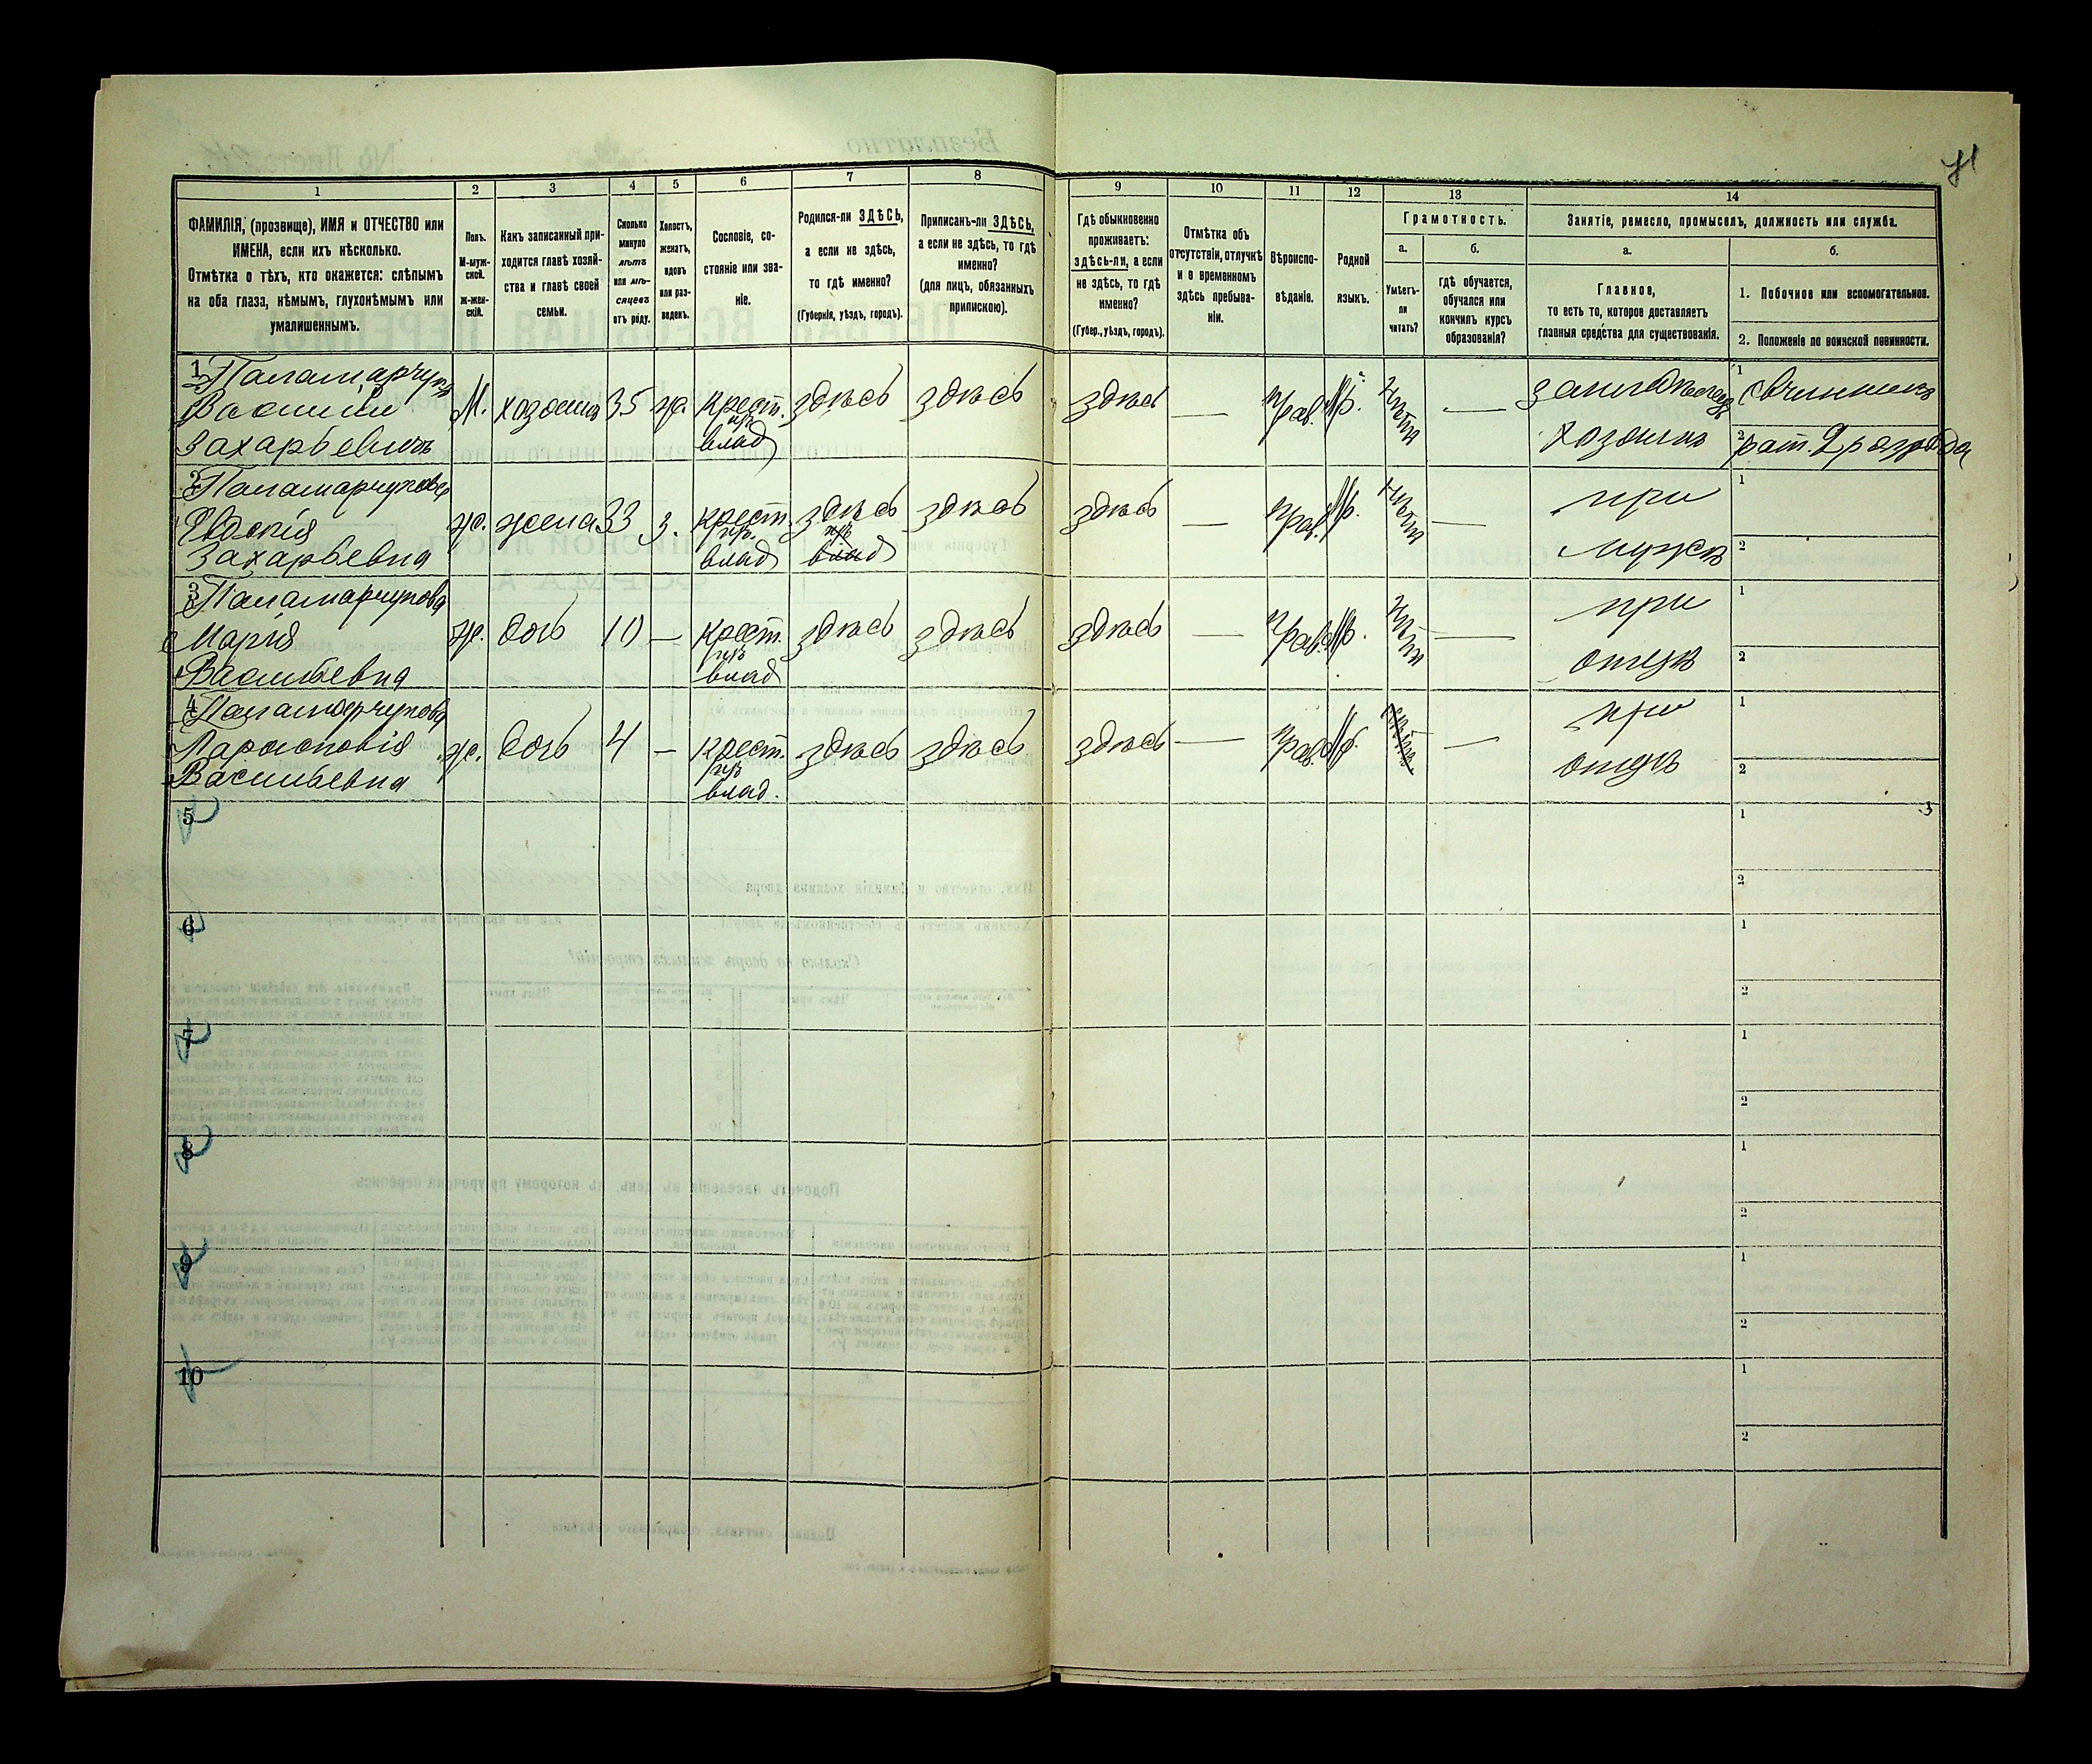 71
1
2
3
4
5
6
7
8
9
10
11
12
13
14
ФАМИЛІЯ, (прозвище), ИМЯ и ОТЧЕСТВО или
ИМЕНА, если ихъ нѣсколько.
Отмѣтка о тѣхъ, кто окажется: слѣпымъ
на оба глаза, нѣмымъ, глухонѣмымъ или
умалишеннымъ.
Полъ.
М-муж-
ской.
ж-жен-
скій.
Какъ записанный при-
ходится главѣ хозяй-
ства и главѣ своей
семьи.
Сколько
минуло
лѣтъ
или мѣ-
сяцевъ
отъ роду.
Холостъ,
женатъ,
вдовъ
или раз-
веденъ.
Сословіе, со-
стояніе или зва-
ніе.
Родился-ли ЗДѢСЬ,
а если не здѣсь,
то гдѣ именно?
(Губернія, уѣздъ, городъ).
Приписанъ-ли ЗДѢСЬ,
а если не здѣсь, то гдѣ
именно?
(для лицъ, обязанныхъ
припискою).
Гдѣ обыкновенно
проживаетъ:
здѣсь-ли, а если
не здѣсь, то гдѣ
именно?
(Губер., уѣздъ, городъ).
Отмѣтка объ
отсутствіи, отлучкѣ
и о временномъ
здѣсь пребыва-
ніи.
Вѣроиспо-
вѣданіе.
Родной
языкъ.
Грамотность.
а.
Умѣетъ-
ли
читать?
б.
гдѣ обучается,
обучался или
кончилъ курсъ
образованія?
Занятіе, ремесло, промыселъ, должность или служба.
а.
Главное,
то есть то, которое доставляетъ
главныя средства для существованія.
б.
1. Побочное или вспомогательное.
2. Положеніе по воинской повинности.
1 Паламарчукъ
Василій
Захарьевичъ
М.
хозяинъ
35
ж.
крест.
пр.
влад
здѣсь
здѣсь
здѣсь
—
прав.
Мр.
нѣтъ
—
хозяинъ
1 Овчинникъ
2 рат. 2 разряда
2 Паламарчукова
Евдокія
Захарьевна
ж.
жена
33
з.
крест.
пр.
влад
здѣсь
пр
влад
здѣсь
здѣсь
—
прав.
Мр.
нѣтъ
—
при
мужѣ
1
2
3 Паламарчукова
Марія
Васильевна
ж.
дочь
10
—
крест.
пр
влад
здѣсь
здѣсь
здѣсь
—
прав.
Мр.
нѣтъ
—
при
отцѣ
1
2
4 Паламарчукова
Парасковія
Васильевна
ж.
дочь
4
—
крест.
пр
влад.
здѣсь
здѣсь
здѣсь
—
прав.
Мр.
нѣтъ
—
при
отцѣ
1
2
5
1
2
6
1
2
7
1
2
8
1
2
9
1
2
10
1
2